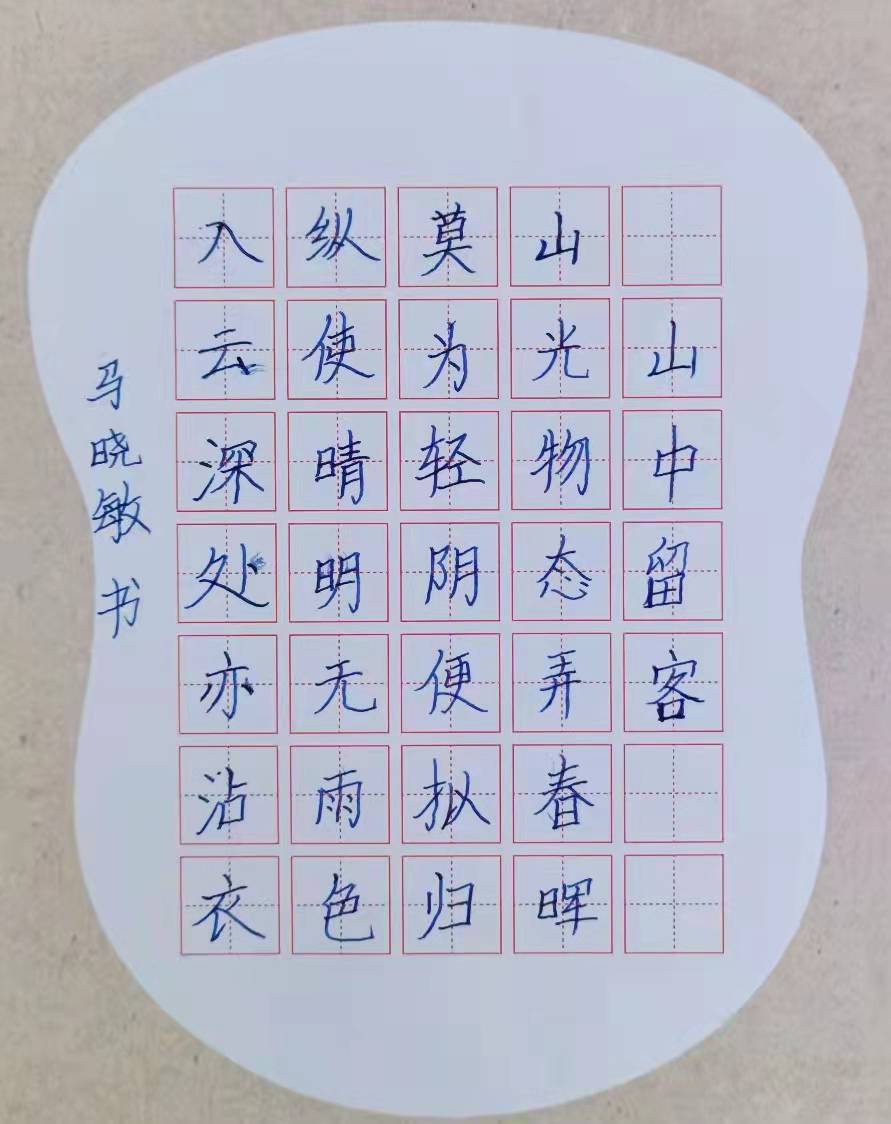 山中留客
山光物态弄春晖
莫为轻阴便拟归
纵使晴明无雨色
入云深处亦沾衣
马晓敏 书